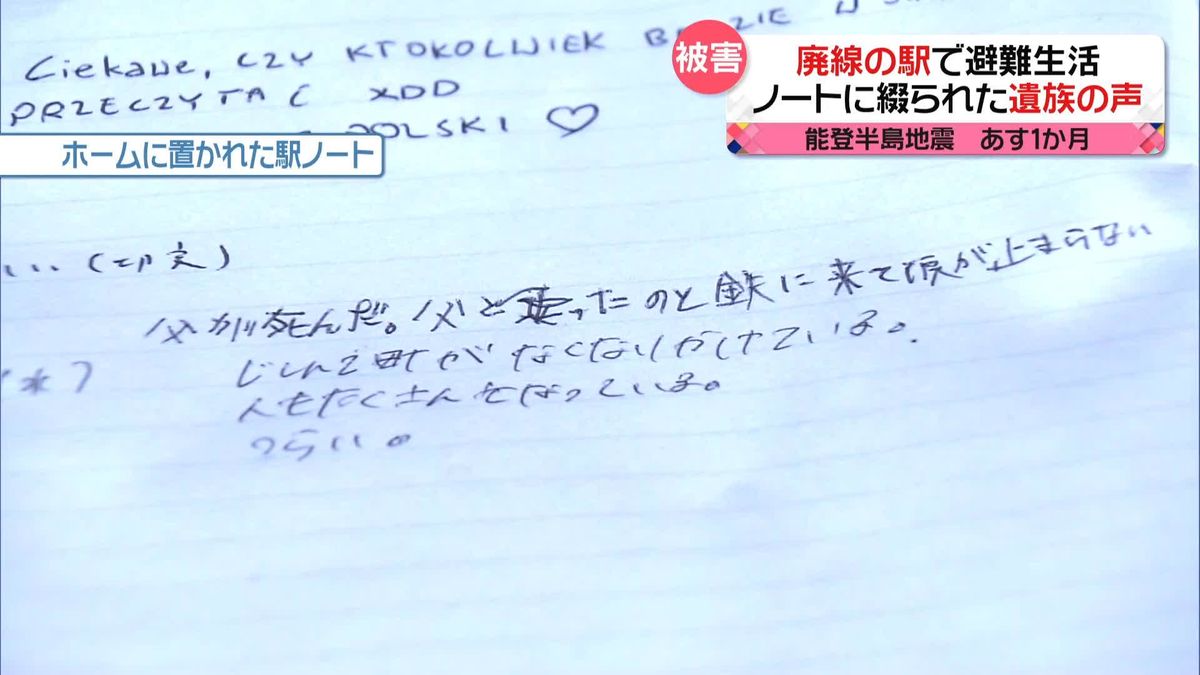 Ciekawe, CZY KTOKOLWIEK BĘDZIE W
PRZECZYTAĆ XDD
POLSKI ♡
被害
廃線の駅で避難生活
ノートに綴られた遺族の声
能登半島地震 あす1か月
ホームに置かれた駅ノート
父が死んだ。父と乗ったのと鉄に来て涙が止まらない
じしんで町がなくなりかけている。
人もたくさんなくなっている。
つらい。